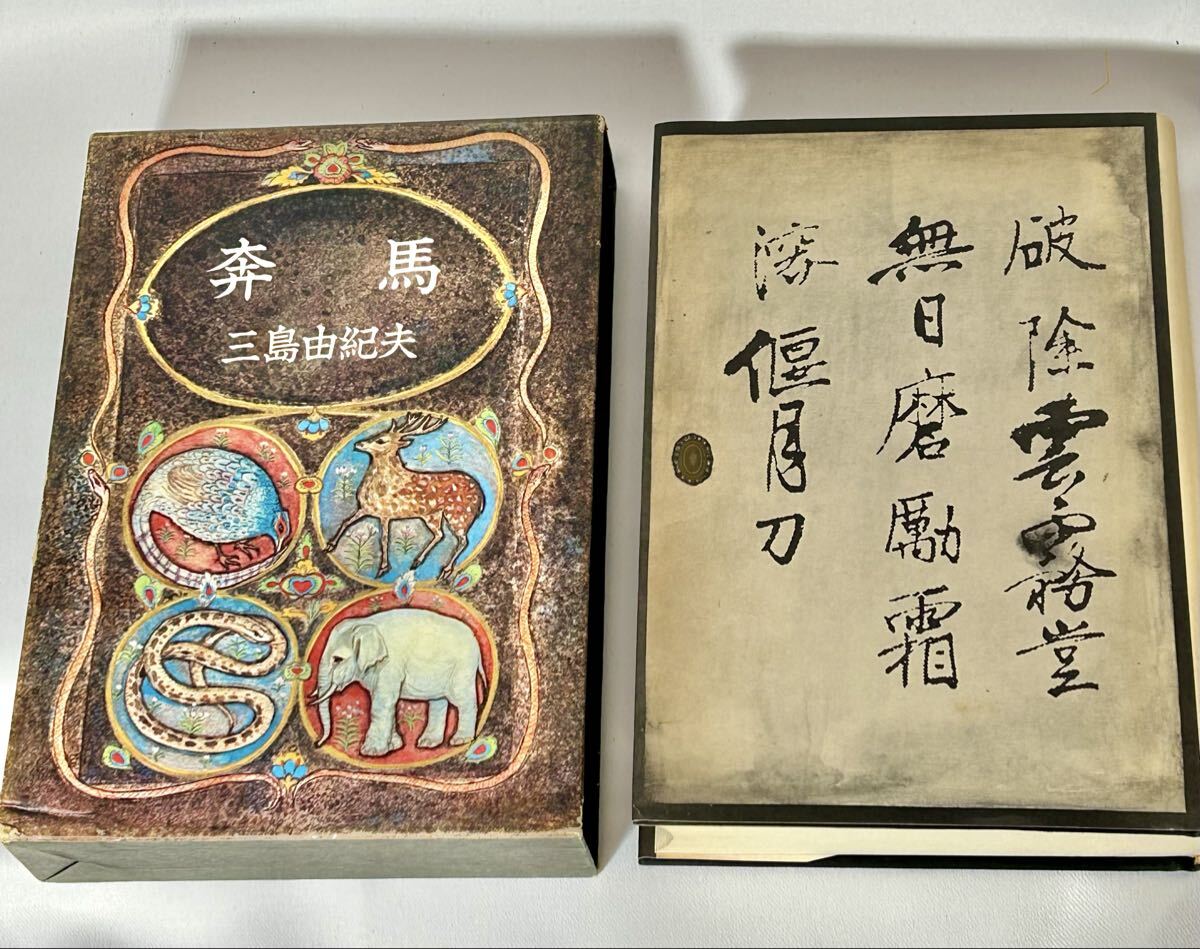 奔馬
三島由紀夫
破除雲霧豈
無日磨勵霜
偃月刀